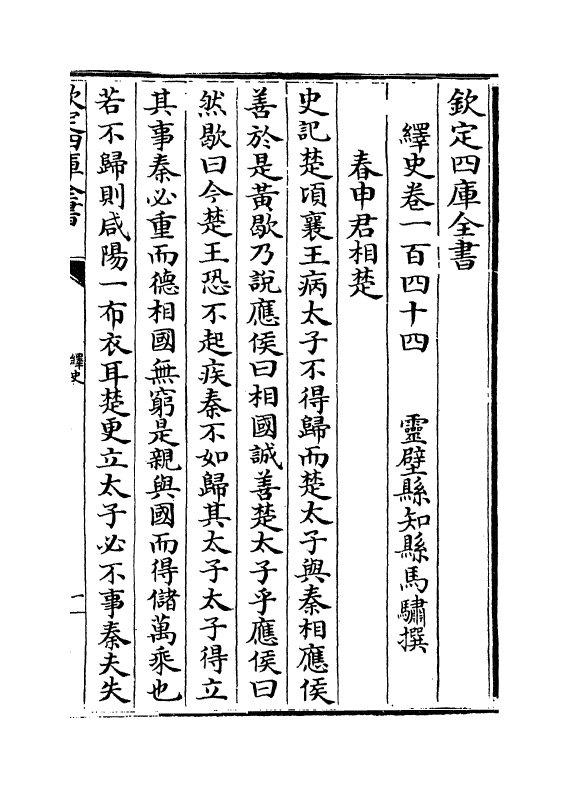 欽定四庫全書
繹史卷一百四十四　　靈壁縣知縣馬驌撰
春申君相楚
史記楚頃襄王病太子不得歸而楚太子與秦相應侯
善於是黃歇乃說應侯曰相國誠善楚太子乎應侯曰
然歇曰今楚王恐不起疾秦不如歸其太子太子得立
其事秦必重而德相國無窮是親與國而得儲萬乘也
若不歸則咸陽一布衣耳楚更立太子必不事秦夫失
欽定四庫全書
繹史